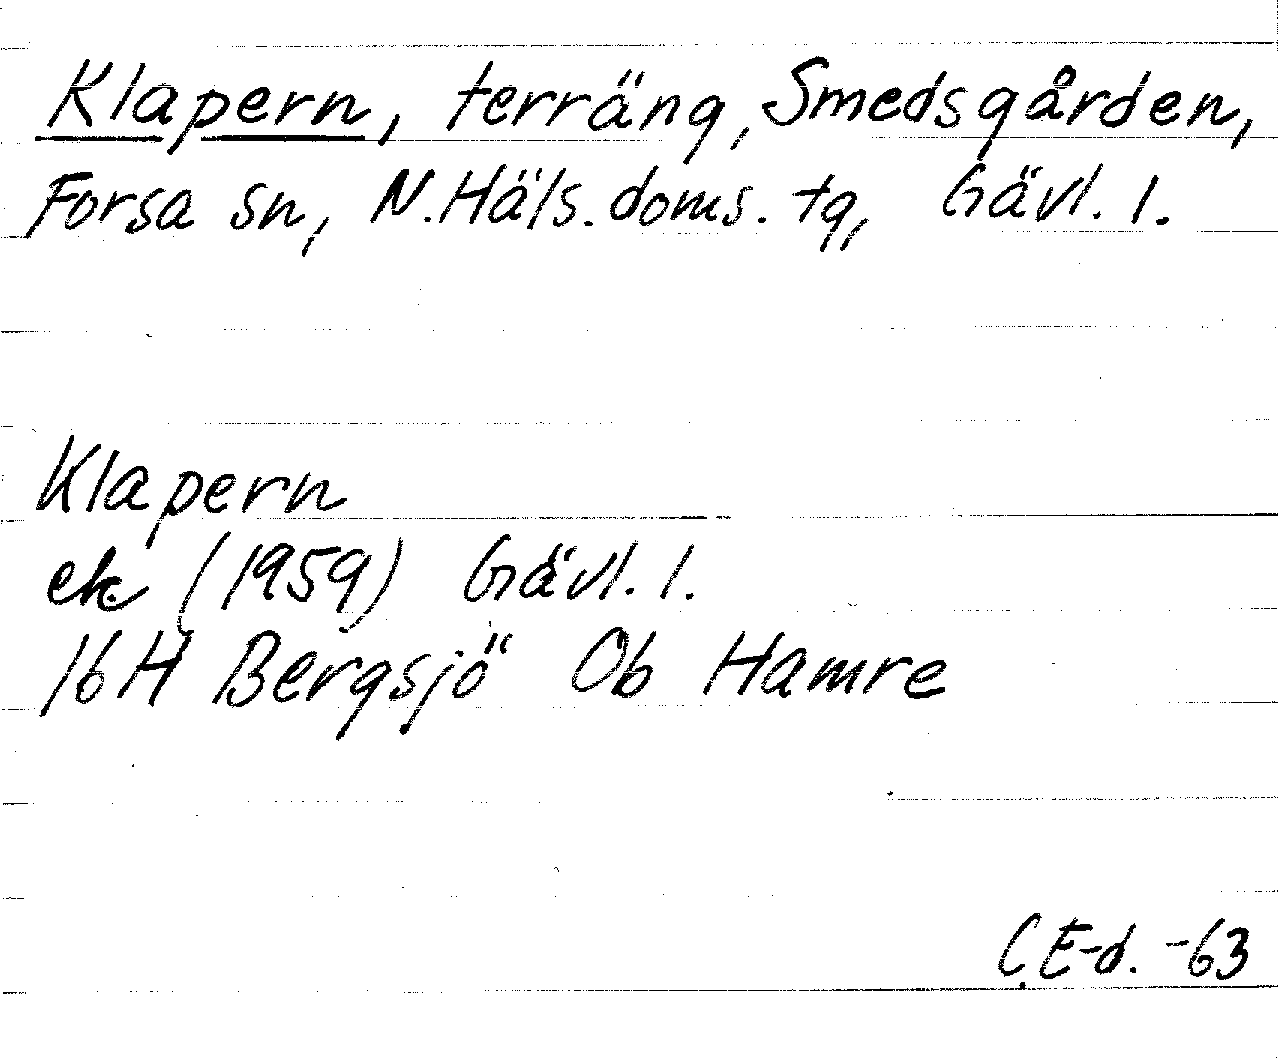 Klapern, terräng, Smedsgården,
Forsa sn, N. Häls. doms. tg, Gävl. l.
Klapern
ek (1959) Gävl. l.
16H Bergsjö Ob Hamre
C.E-d. -63